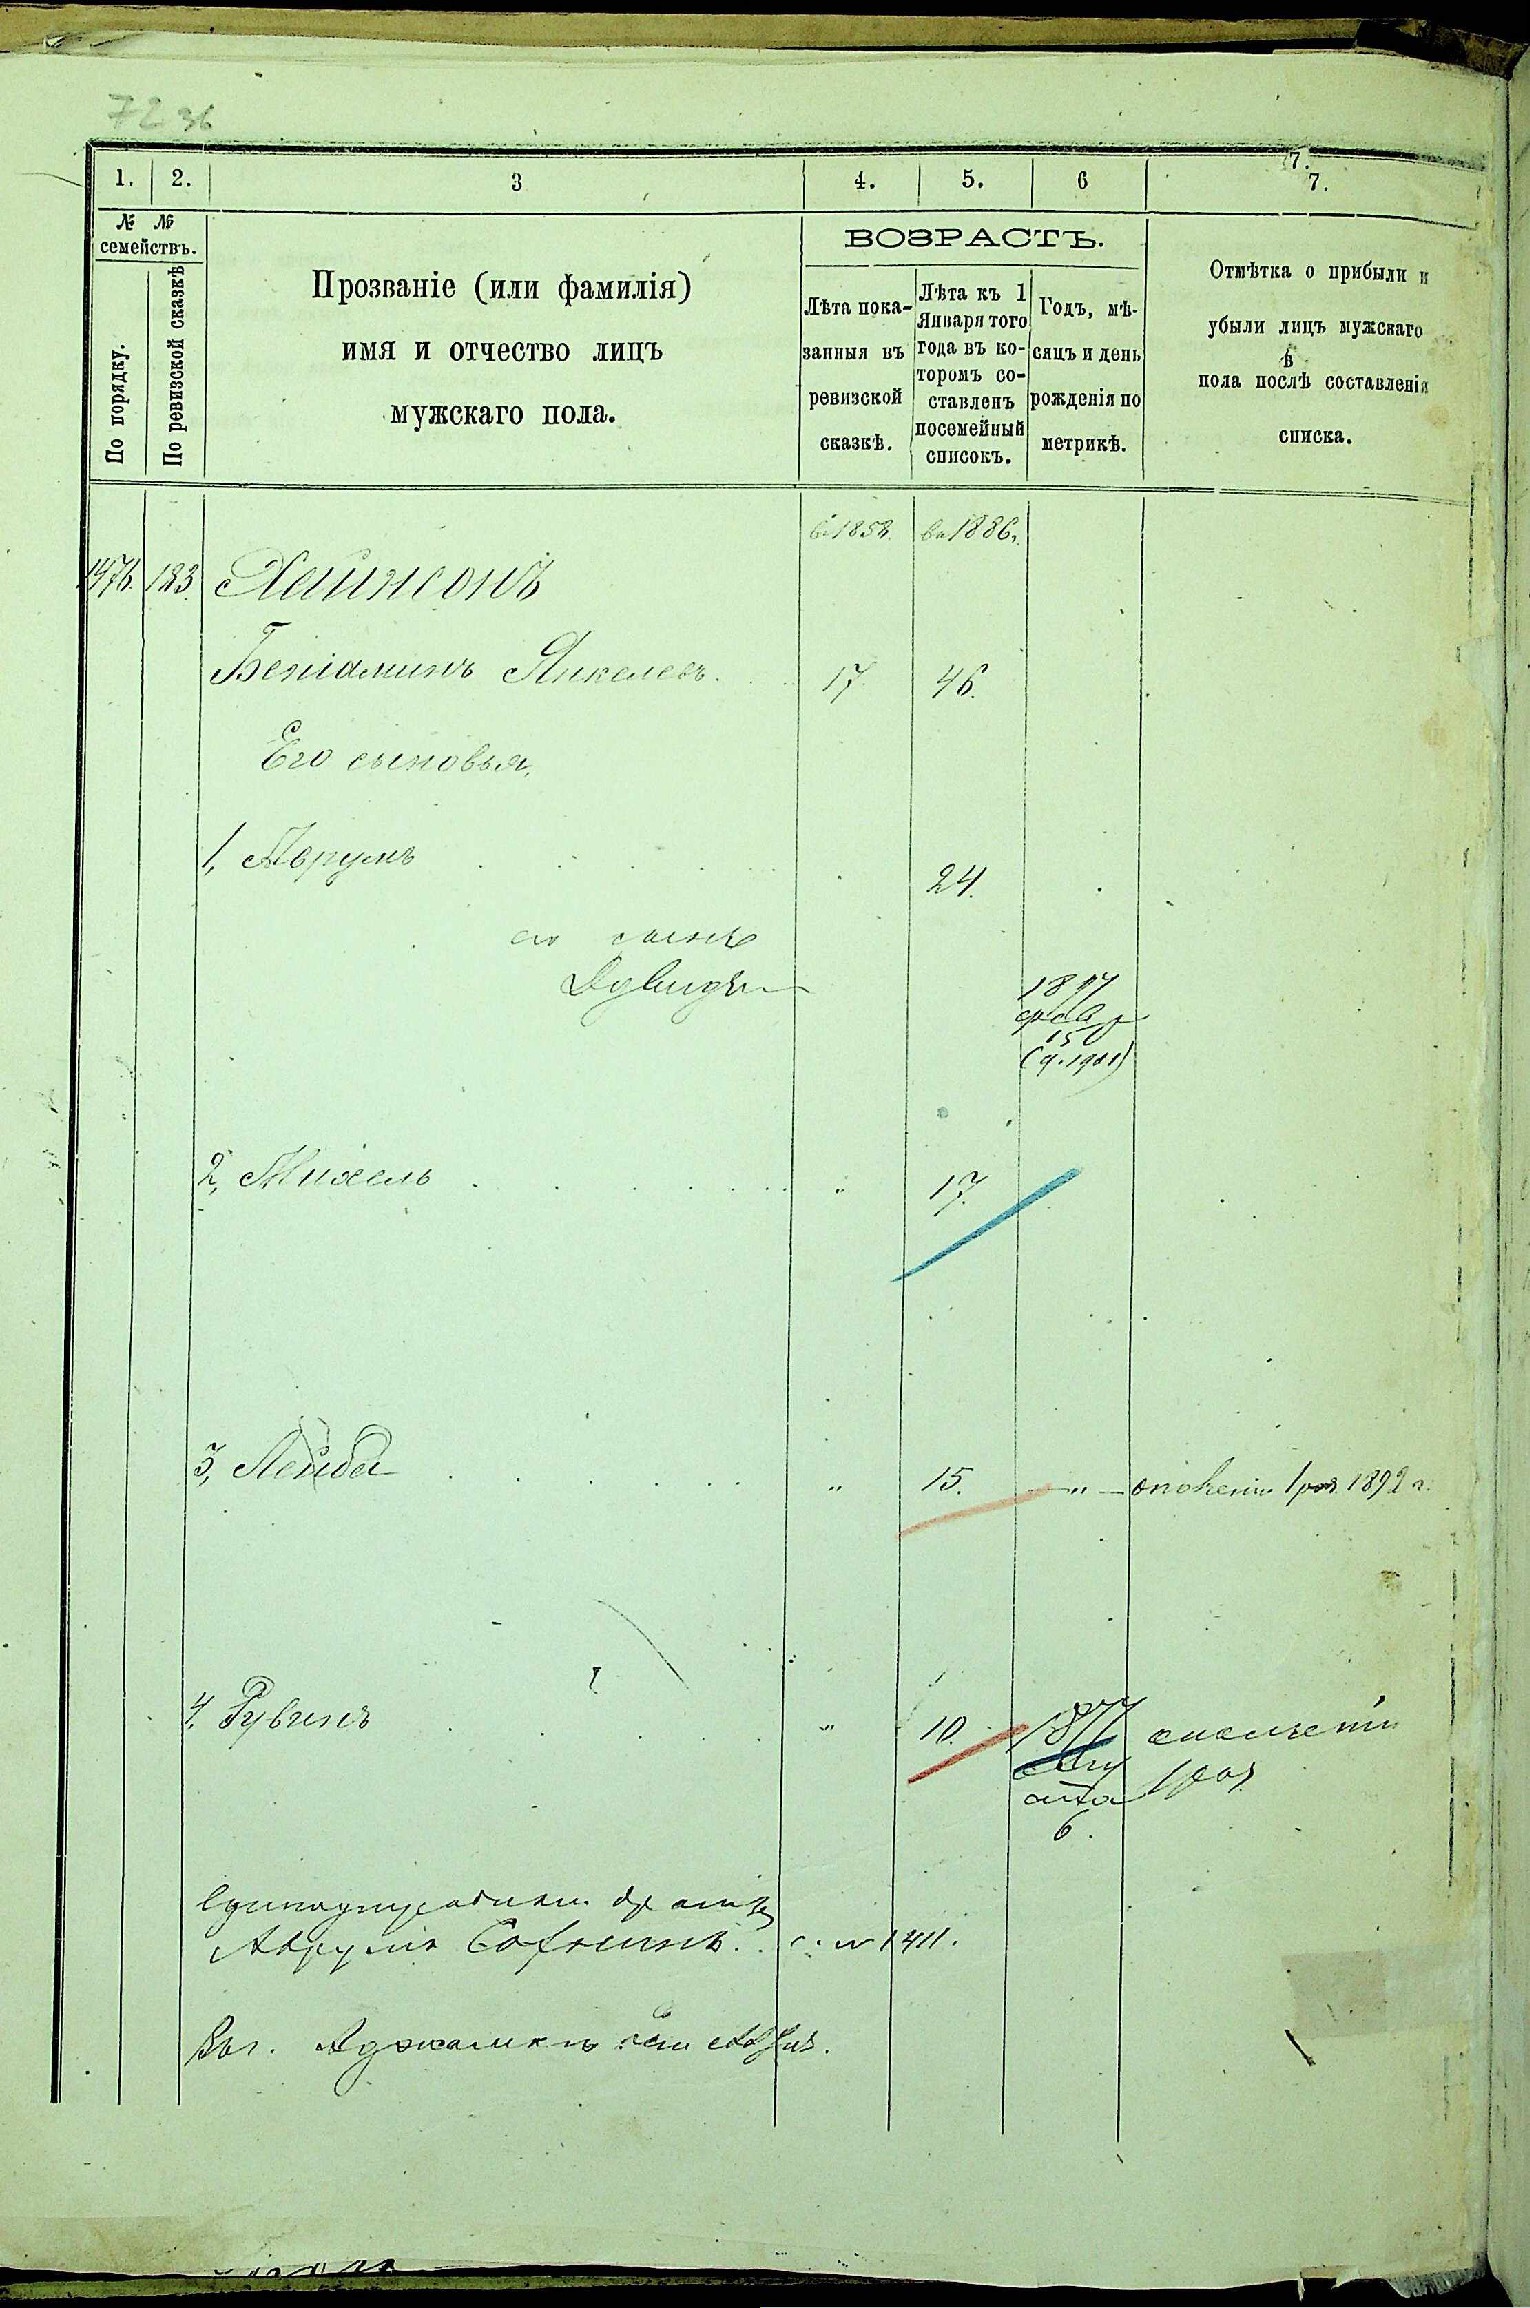 72 36
1. 2. 3 4. 5. 6 7.
7.
№ № семействъ.
По порядку.
По ревизской сказкѣ
Прозваніе (или фамилія)
имя и отчество лицъ
мужскаго пола.
ВОЗРАСТЪ.
Лѣта пока-
занныя въ
ревизской
сказкѣ.
Лѣта къ 1
Января того
года въ ко-
торомъ со-
ставленъ
посемейный
списокъ.
Годъ, мѣ-
сяцъ и день
рожденія по
метрикѣ.
Отмѣтка о прибыли и
убыли лицъ мужскаго
в
пола послѣ составленія
списка.
в 1858. въ 1886г.
1476. 183. Хаинсонъ
Беніаминъ Янкелевъ. 17 46.
Его сыновья,
1, Аврумъ 24.
его сынъ
Дувидъ
1897
15
(ч. 1901)
2, Михель " 17.
3, Лейба " 15. — " — 1 раз. 1892 г.
4, Рувинъ " 10. 1877
Авгу
ста 1 раз
6.
Аврумъ с. № 1411.